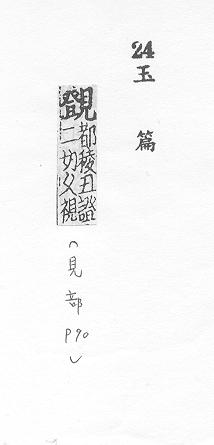 24
玉篇
覴
都稜丑證
二切久視
(見部 P90)